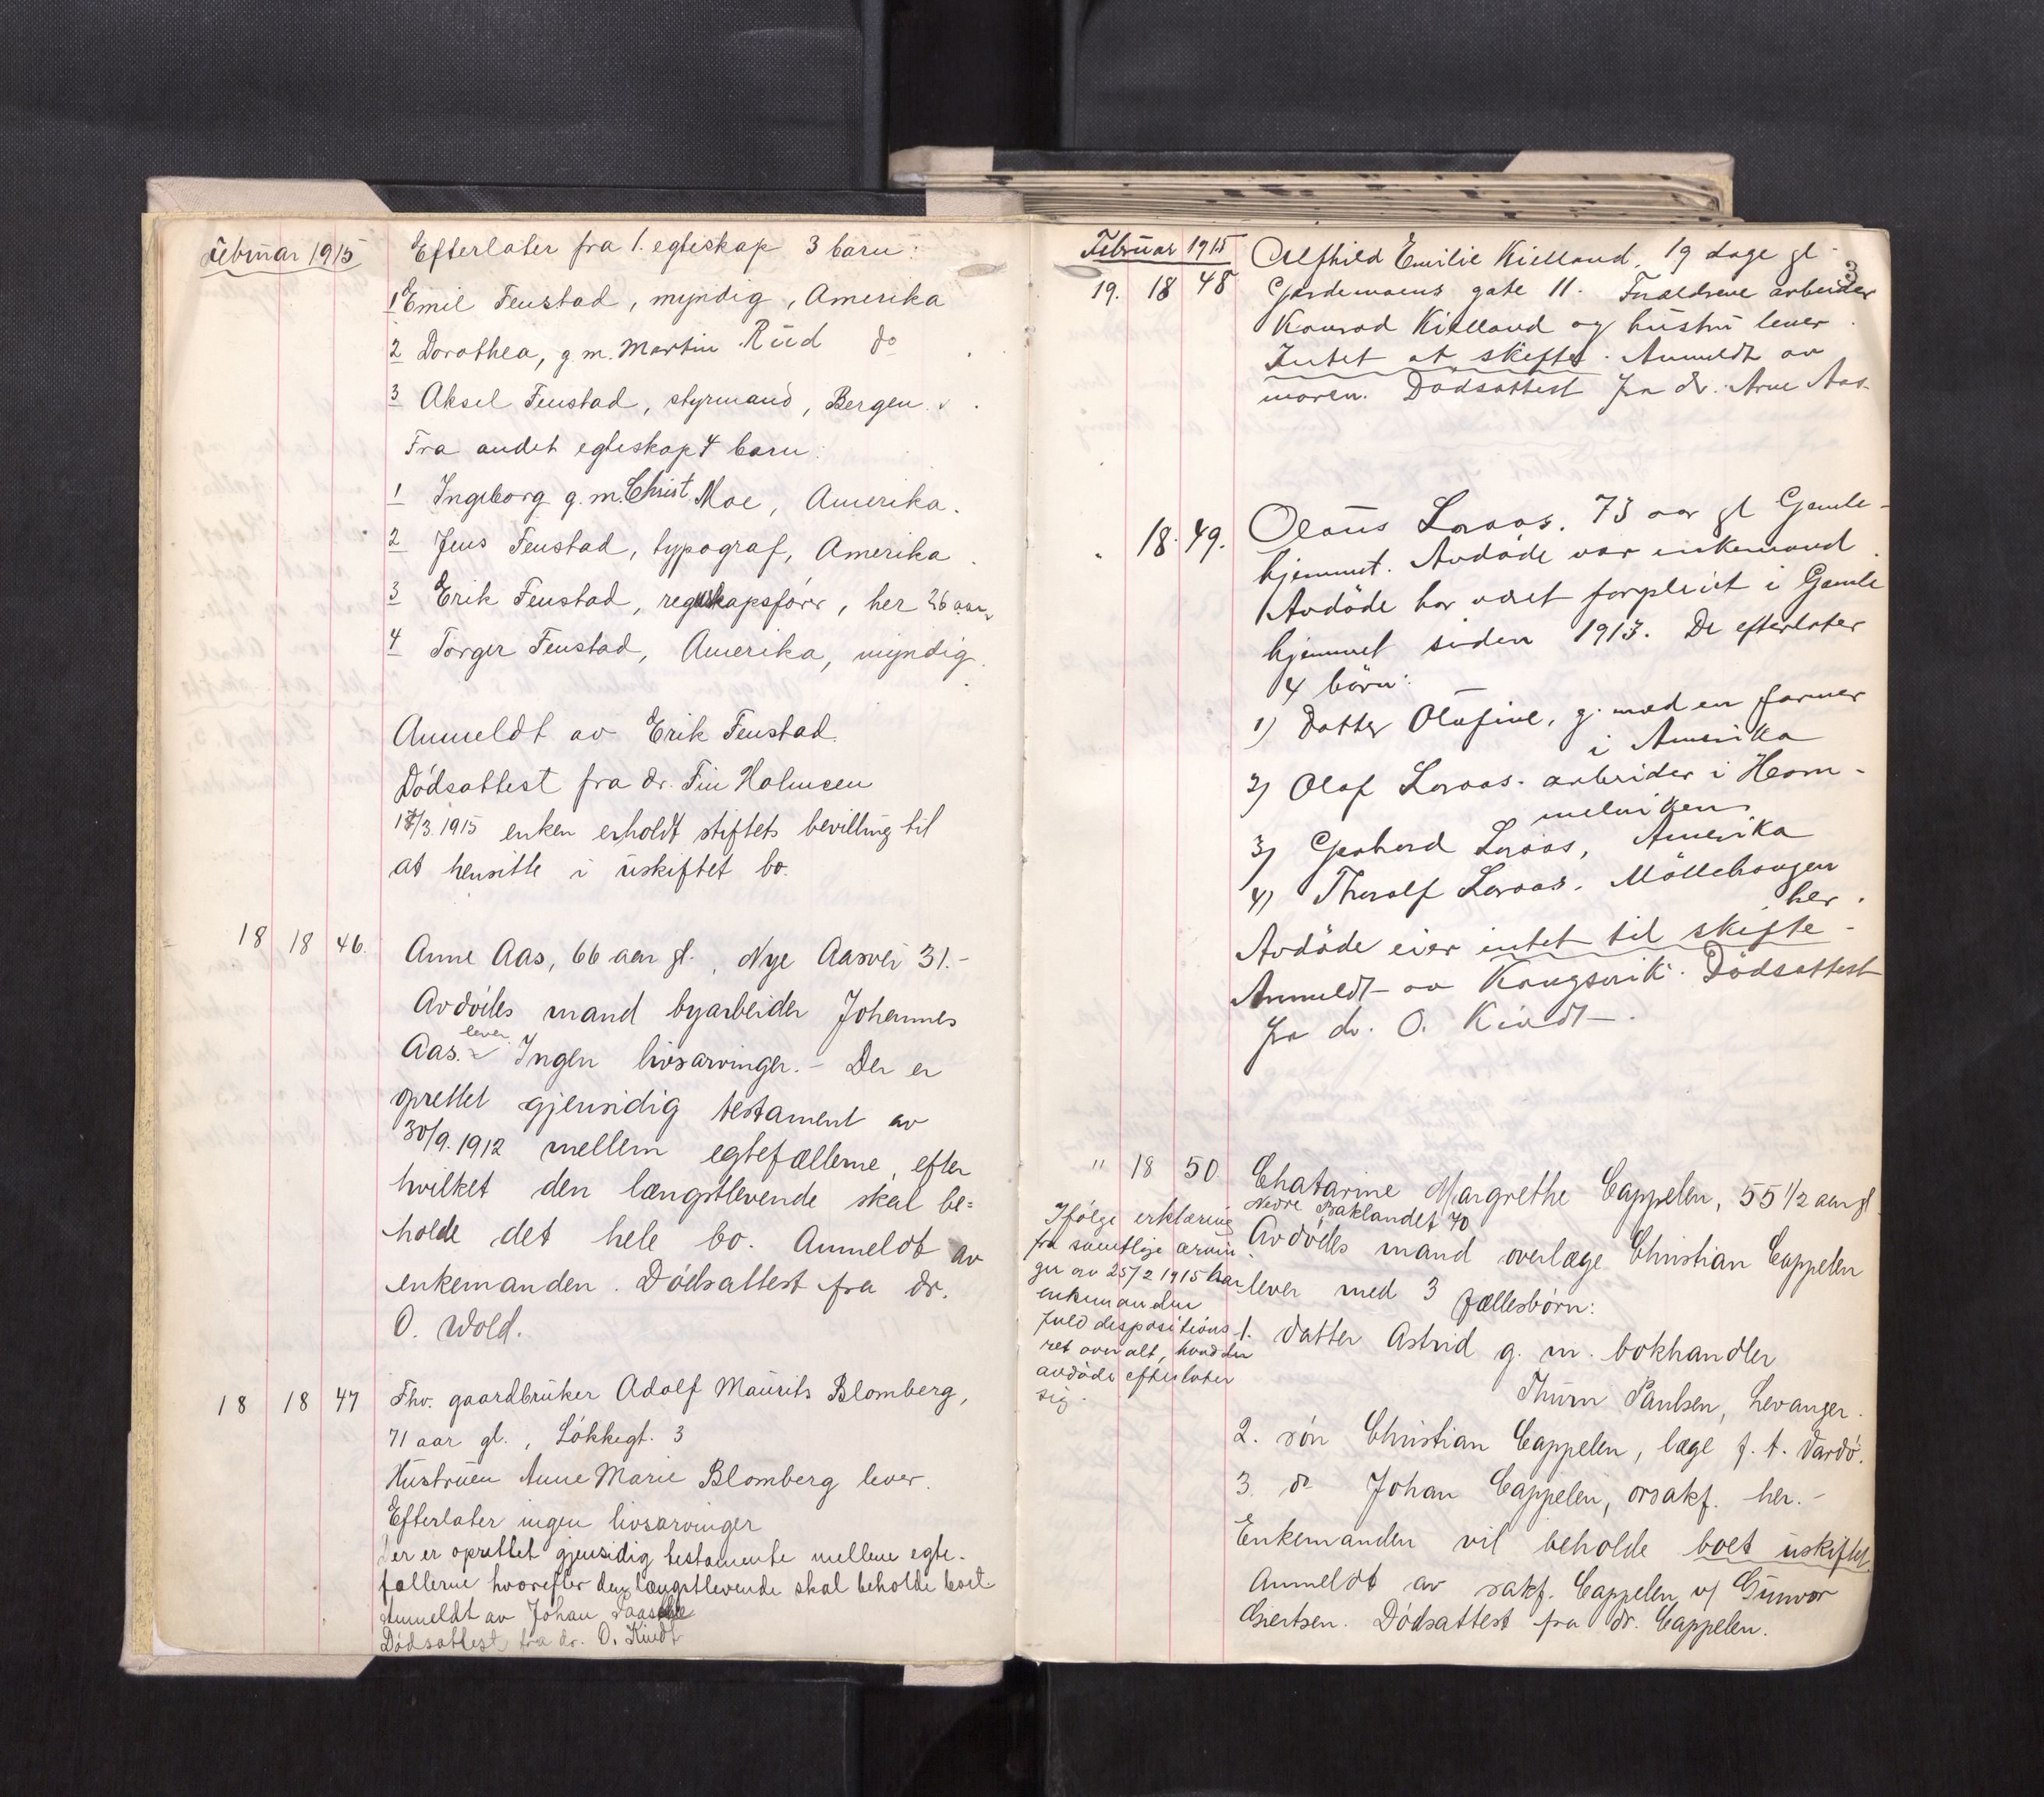 Februar 1915
Efterlater fra 1. egteskap 3 barn:
1 Emil Fenstad, myndig, Amerika
2 Dorothea, g. m. Martin Rüd do
3 Aksel Fenstad, styrmand, Bergen.
Fra andet egteskap 4 barn:
1 Ingeborg g. m. Christ. Moe, Amerika.
2 Jens Fenstad, typograf, Amerika.
3 Erik Fenstad, regnskapsförer, her 26 aar
4 Torger Fenstad, Amerika, myndig.
Anmeldt av Erik Fenstad.
Dödsattest fra dr. Fin Holmsen
/3. 1915 enken erholdt stiftets bevilling til
at hensitte i uskiftet bo.
18 18 46. Anne Aas, 66 aar gl., Nye Aasvei 31.-
Avdödes mand byarbeider Johannes
Aas. lever Ingen livsarvinger. - Der er
oprettet gjensidig testament av
30/9. 1912 mellem egtefællerne, efter
hvilket den længstlevende skal be=
holde det hele bo. Anmeldt av
enkemanden. Dödsattest fra dr.
O. Wold.
18 18 47 Fhv. gaardbruker Adolf Maurits Blomberg,
71 aar gl., Lökkegt. 3
Hustruen Anne Marie Blomberg lever.
Efterlater ingen livsarvinger
Der er oprettet gjensidig testamente mellem egte-
fællerne hvorefter den længstlevende skal beholde boet
Anmeldt av Johan
Dödsattest fra dr. O. Kindt
3
Februar 1915
19. 18 48 Alfhild Emilie Kielland, 19 dage gl
Gardemoens gate 11. Forældrene arbeider
Konrad Kielland og hustru lever.
Intet at skifte. Anmeldt av
moren. Dödsattest fra dr. Arne Aas.
" 18. 49. Olaus Loraas. 73 aar gl Gamle-
hjemmet. Avdöde var enkemand.
Avdöde har været forpleiet i Gamle
hjemmet siden 1913. De efterlater
4 börn:
1) Datter Olufine, g. med en farmer
i Amerika
2) Olaf Loraas. arbeider i Hom-
melviken
3) Gerhard Loraas, Amerika
4) Thoralf Loraas. Möllebougen
her.
Avdöde eier intet til skifte -
Anmeldt av Kongsvik. Dödsattest
fra dr. O. Kindt -.
" 18 50 Chatarine Margrethe Cappelen, 55 1/2 aar gl.
Nedre Baklandet 70
Avdödes mand overlæge Christian Cappelen
lever med 3 fællesbörn:
1. datter Astrid g. m. bokhandler
Thurn Paulsen, Levanger.
2. sön Christian Cappelen, læge f. t. Vardö.
3. do Johan Cappelen, orsakf. her. -
Enkemanden vil beholde boet uskiftet.
Anmeldt av sakf. Cappelen v/ Gunvor
Giertsen. Dödsattest fra dr. Cappelen.
Ifölge erklæring
fra samtlige arvin-
ger av 25/2 1915 har
enkemanden
fuld dispositions-
ret over alt, hvad den
avdöde efterlater
sig.